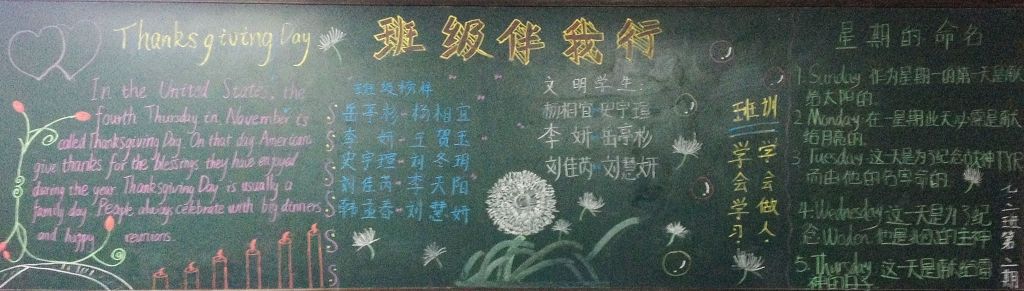 Thanksgiving Day
In the United States, the
fourth Thursday in November is
called Thanksgiving Day. On that day, Americans
give thanks for the blessings they have enjoyed
during the year. Thanksgiving Day is usually a
family day. People always celebrate with big dinners
and happy reunions.
班级伴我行
班级榜样
岳亭杉-杨相宜
李妍-王贺玉
史宇瑄-刘冬明
刘佳芮-李天阳
韩孟春-刘慧妍
文明学生:
杨相宜 史宇瑄
李妍 岳亭杉
刘佳芮 刘慧妍
班训
学会做人
学会学习
星期的命名
1. Sunday 作为星期一的第一天是献
给太阳的.
2. Monday 在一星期此天必需是献
给月亮的.
3. Tuesday 这一天是为了纪念战神TYR
而由他的名字命的.
4. Wednesday 这一天是为了纪
念Woden 他是北欧的主神
5. Thursday 这一天是献给雷
神的日子
九.二班第二期